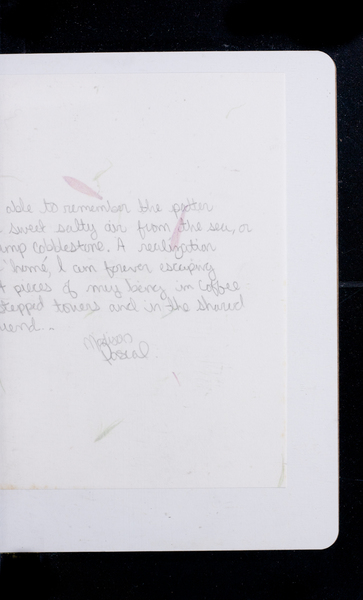 able to remember the patter
sweet salty air from the sea, or
amp cobblestone. A realization
'home', I am forever escaping
t pieces of my being in coffee
stepped towers and in the shared
riend...